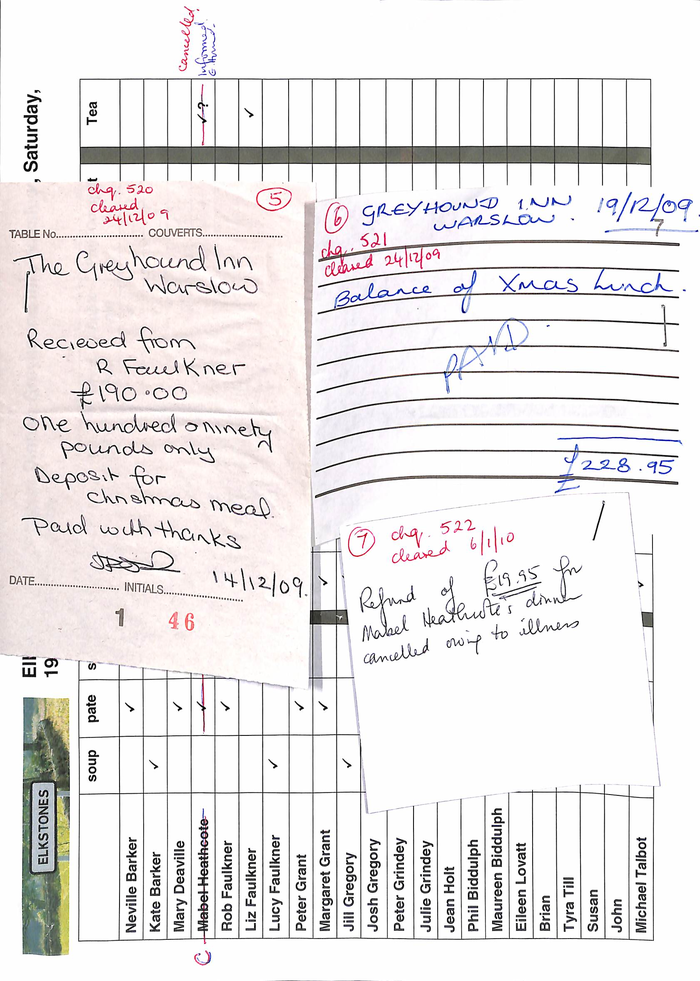 cancelled.
Informed
, Saturday,
Tea
✓?
✓
chq. 520
cleared
24/12/09
5
TABLE No. COUVERTS.
The Greyhound Inn
Warslow
Recieved from
R Faulkner
£190.00
One hundred & ninety
pounds only
Deposit for
christmas meal.
Paid with thanks
14/12/09.
DATE INITIALS
1 46
6
GREYHOUND INN
WARSLOW.
19/12/09.
chq. 521
cleared 24/12/09
Balance of Xmas Lunch.
PAID
£228.95
7
chq. 522
cleared 6/1/10
Refund of £19.95 for
Mabel Heathcote's dinner
cancelled owing to illness
19
pate
soup
ELKSTONES
Neville Barker
Kate Barker
Mary Deaville
C Mabel Heathcote
Rob Faulkner
Liz Faulkner
Lucy Faulkner
Peter Grant
Margaret Grant
Jill Gregory
Josh Gregory
Peter Grindey
Julie Grindey
Jean Holt
Phil Biddulph
Maureen Biddulph
Eileen Lovatt
Brian
Tyra Till
Susan
John
Michael Talbot